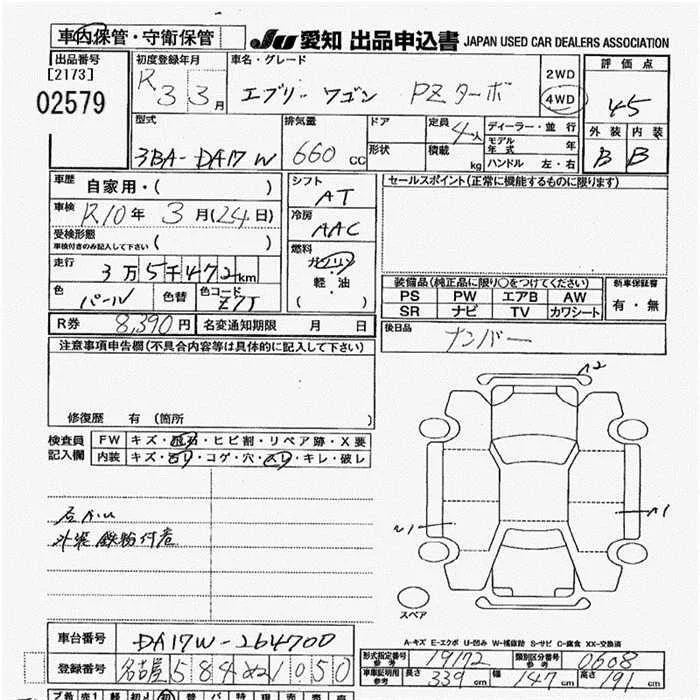 車内保管・守衛保管
JU 愛知 出品申込書 JAPAN USED CAR DEALERS ASSOCIATION
出品番号 [2173] 02579
初度登録年月 R3 3月
車名・グレード エブリーワゴン PZターボ
2WD 4WD
評価点 4.5
外装 内装 B B
型式 3BA-DA17W
排気量 660 CC
ドア 形状
定員 4人 積載 kg
ディーラー・並行
モデル年式 年
ハンドル 左・右
車歴 自家用・( )
車検 R10年 3月(24日)
受検形態 車検付きのみ記入して下さい ( )
走行 3万5千472km
色 パール 色替 色コード Z7T
シフト AT
冷房 AAC
燃料 ガソリン 軽・油 ( )
セールスポイント(正常に機能するものに限ります)
装備品(純正品に限り○をつけてください)
PS PW エアB AW
SR ナビ TV カワシート
新車保証書 有・無
R券 8,390円 名変通知期限 月 日
後日品 ナンバー
注意事項申告欄(不具合内容等は具体的に記入して下さい)
修復歴 有 (箇所 )
検査員記入欄
FW キズ・飛石・ヒビ割・リペア跡・X要
内装 キズ・汚れ・コゲ・穴・スレ・キレ・破レ
外装 鉄粉付着
A2
A1
A1
スペア
A-キズ E-エクボ U-凹み W-補修跡 S-サビ C-腐食 XX-交換済
車台番号 DA17W-264700
登録番号 名古屋 584 ぬ 1050
形式指定番号 参考 19172 類別区分番号 参考 0608
車庫証明用 参考 長さ 339cm 幅 147cm 高さ 191cm